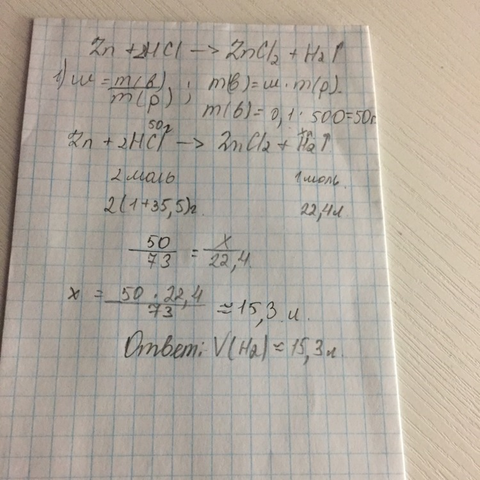 Zn + 2HCl —> ZnCl2 + H2↑
1) w = m(в)/m(р) ; m(в) = w · m(р).
m(в) = 0,1 · 500 = 50г
50г x
Zn + 2HCl —> ZnCl2 + H2↑
2 моль 1 моль.
2(1+35,5)г. 22,4л
50/73 = x/22,4.
x = 50 · 22,4/73 ≈ 15,3 л.
Ответ: V(H2) ≈ 15,3 л.